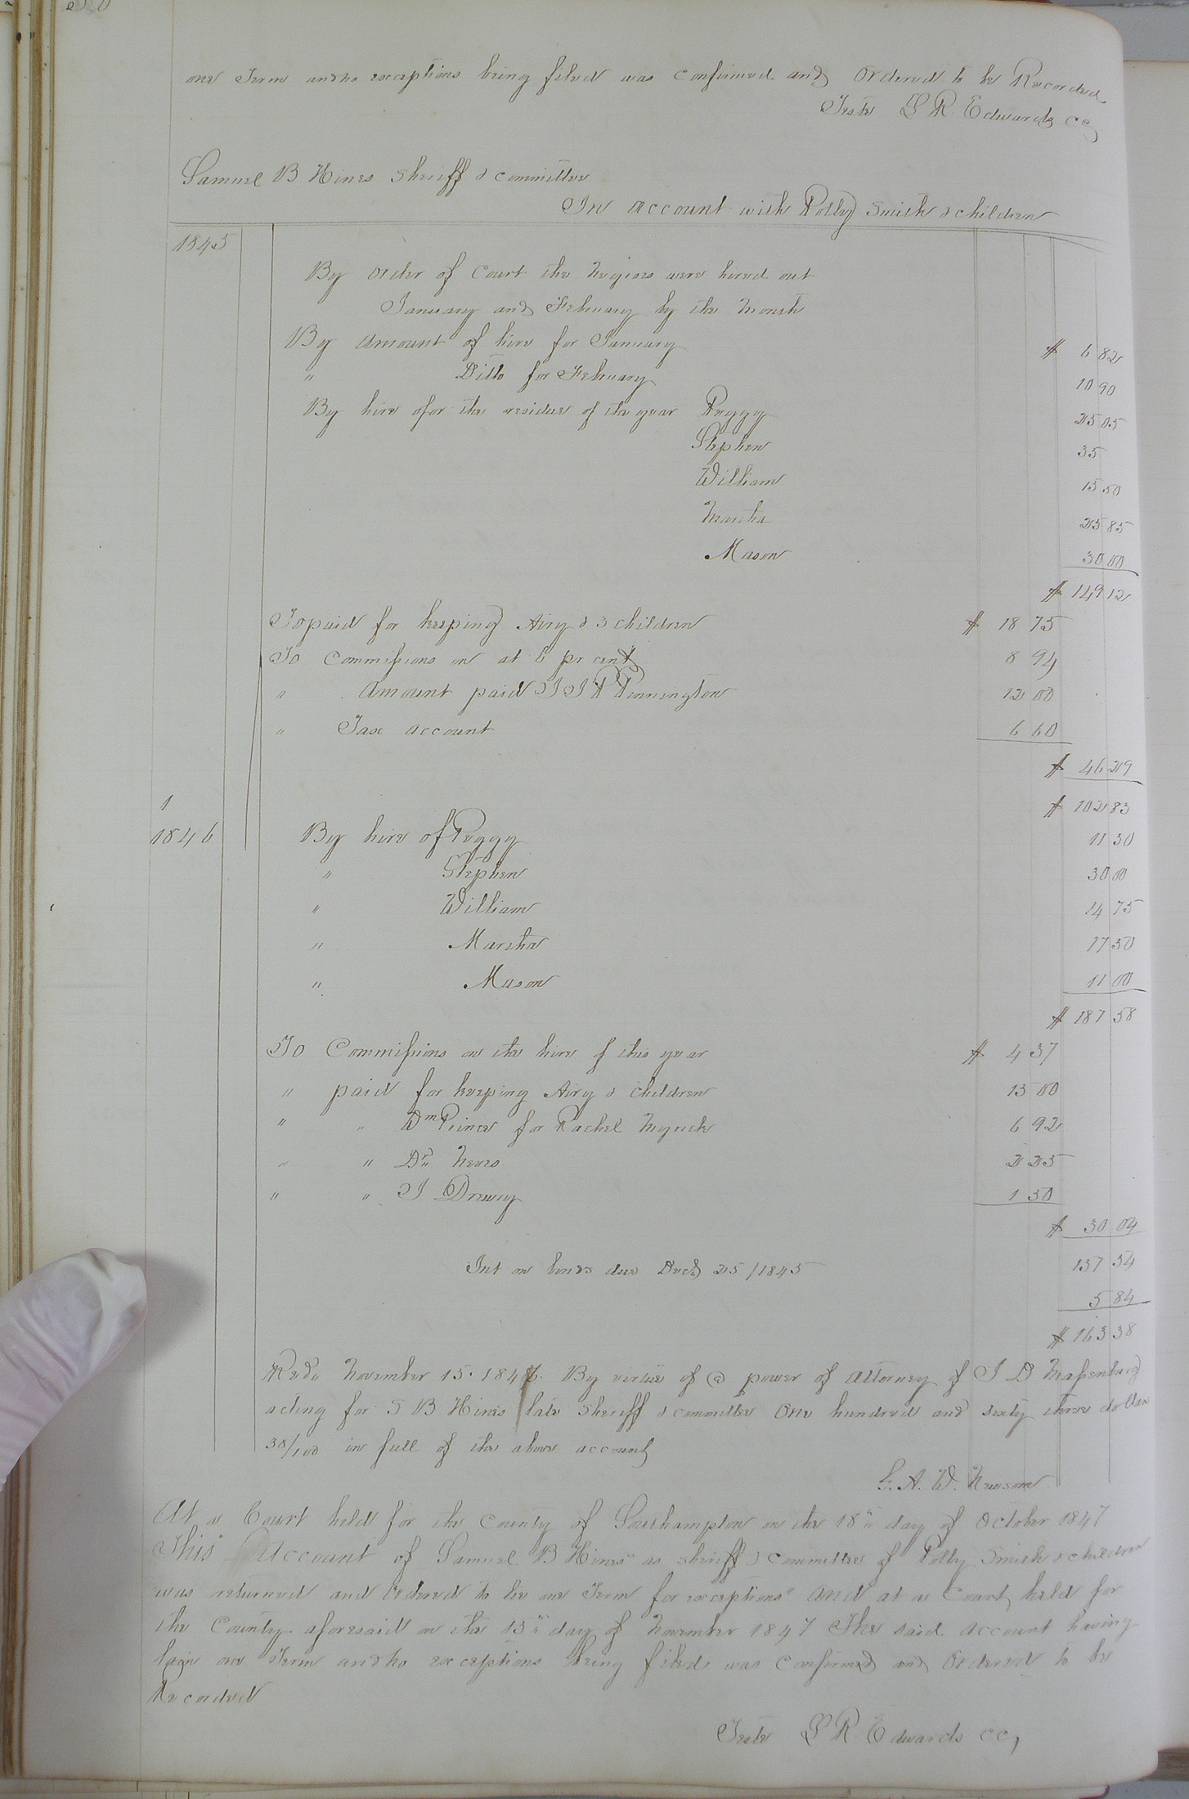 one Term and no exceptions being filed was confirmed and Ordered to be Recorded
Teste L R Edwards CC
Samuel B Hines Sheriff & committee
In account with Polly Smith & children
1845
By order of Court the Negroes were hired out
January and February by the Month
By Amount of hire for January $ 6 82
" Ditto for February 10 90
By hire ofor the residue of the year Peggy 25 05
Stephen 35
William 15 50
Martha 25 85
Mason 30 00
$ 149 12
To paid for keeping Airy & 3 children $ 18 75
To Commissions on at 6 pr cent 8 94
" Amount paid J J R Pennington 12 00
" Tax account 6 60
$ 46 29
1 $ 102 83
1846 By hire of Peggy 11 30
" Stephen 30 00
" William 14 75
" Martha 17 50
" Mason 11 00
$ 187 58
To Commissions on the hire of this year $ 4 37
" paid for keeping Airy & children 15 00
" " Wm Prince for Rachel Myrick 6 92
" " Dr 2 25
" " J Drewry 1 50
$ 30 04
157 54
Int on bonds due Decr 25/1845
5 84
$ 163 38
Recd November 15. 1847. By virtue of a power of Attorney of J D Massenburg
acting for S B Hines late Sheriff & committee One hundred and sixty three dollars
38/100 in full of the above account
G. A. W. Newsom
At a Court held for the County of Southampton on the 18th day of October 1847
This Account of Samuel B Hines as sheriff & Committee of Polly Smith & children
was returned and Ordered to lie one Term for exceptions And at a Court held for
the County aforesaid on the 15th day of November 1847 The said account having
lain one Term and no exceptions being filed, was Confirmed and Ordered to be
Recorded
Teste L R Edwards CC,